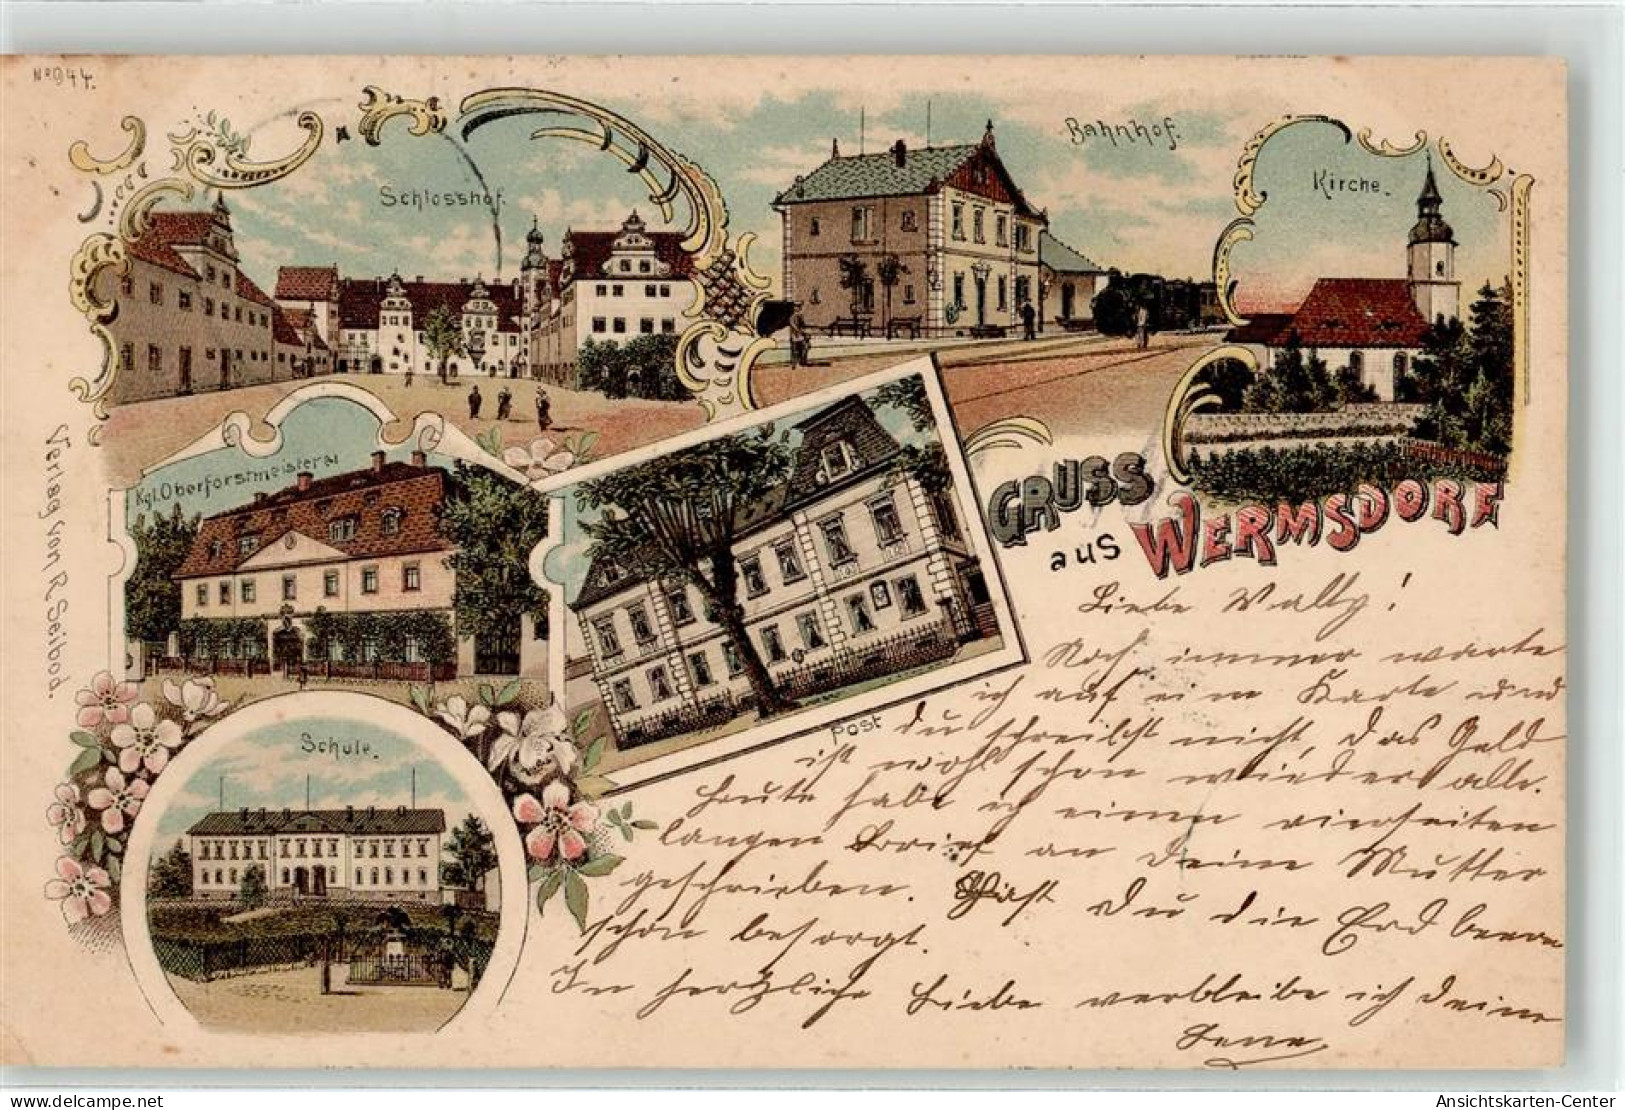 No 944.
Schlosshof.
Bahnhof.
Kirche.
Kgl. Oberforstmeisterei
Verlag von R. Seibod.
Post
Schule.
GRUSS
aus WERMSDORF
Liebe Wally!
Noch immer warte
ich auf eine Karte und
du schreibst nicht, das Geld
ist wohl schon wieder alle.
Heute habe ich einen vierseiten
langen Brief an Deine Mutter
geschrieben. Hast Du die Erdbeeren
schon besorgt.
In herzlicher Liebe verbleibe ich Deine
Lene
Ansichtskarten-Center
www.delcampe.net